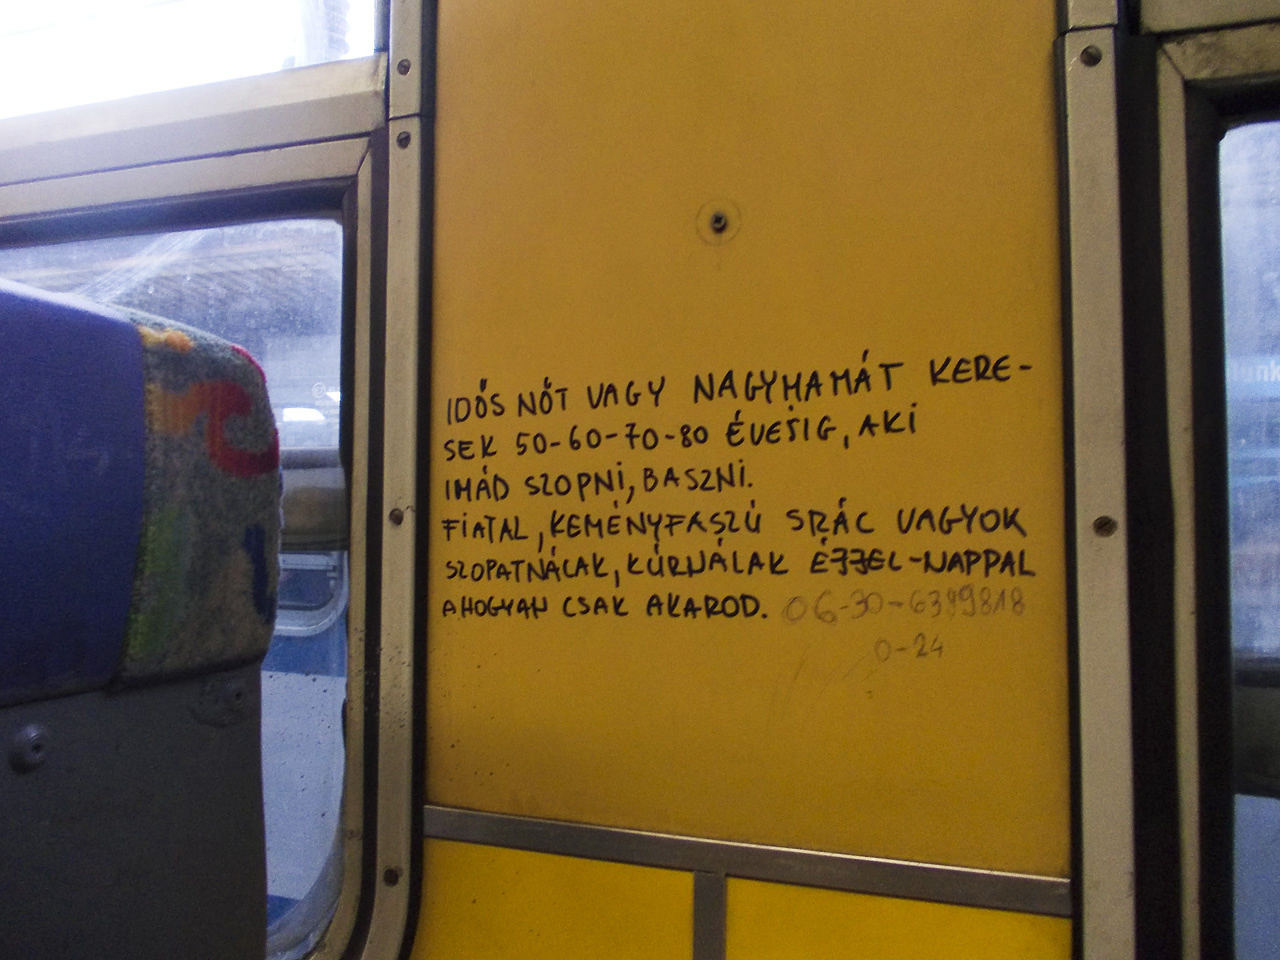 IDŐS NŐT VAGY NAGYMAMÁT KERE-
SEK 50-60-70-80 ÉVESIG, AKI
IMÁD SZOPNI, BASZNI.
FIATAL, KEMÉNYFASZÚ SRÁC VAGYOK
SZOPATNÁLAK, KÚRNÁLAK ÉJJEL-NAPPAL
AHOGYAN CSAK AKAROD. 06-30-6399818
0-24